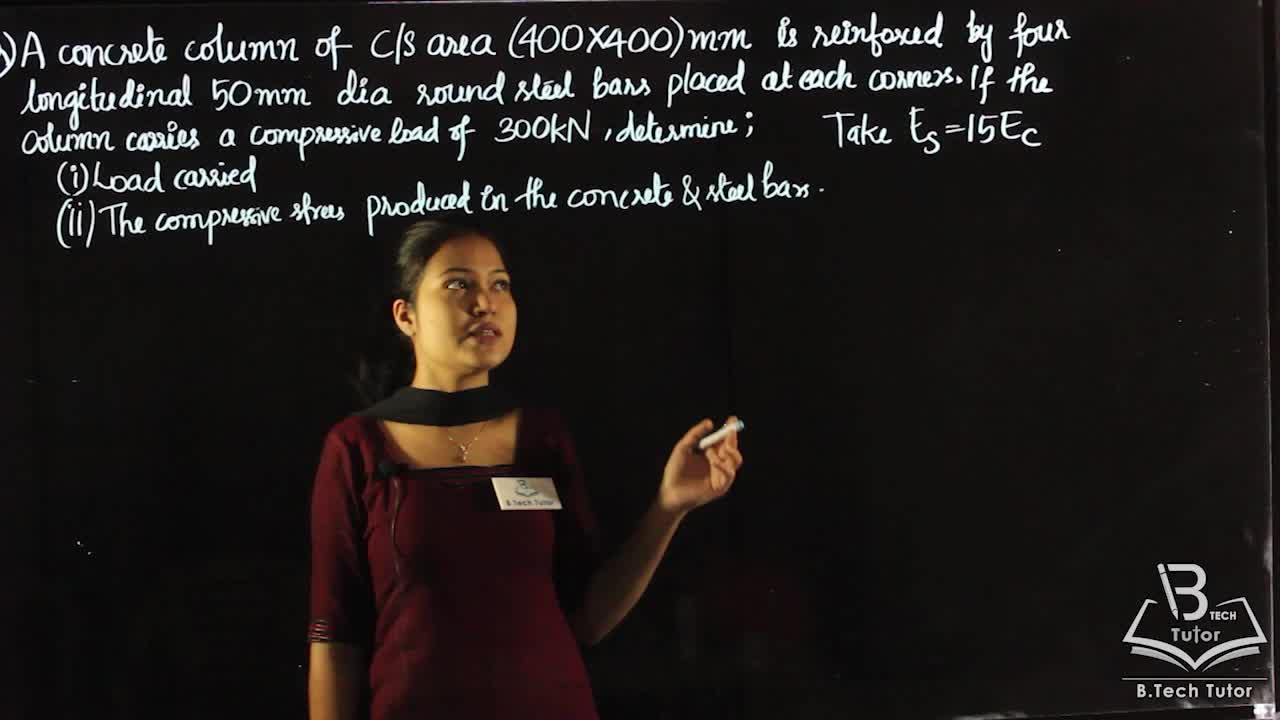 ) A concrete column of C/s area (400X400)mm is reinforced by four
longitudinal 50mm dia round steel bars placed at each corners. If the
column carries a compressive load of 300kN, determine; Take Es=15Ec
(i) Load carried
(ii) The compressive stress produced in the concrete & steel bars.
B
B.Tech Tutor
B
TECH
Tutor
B.Tech Tutor